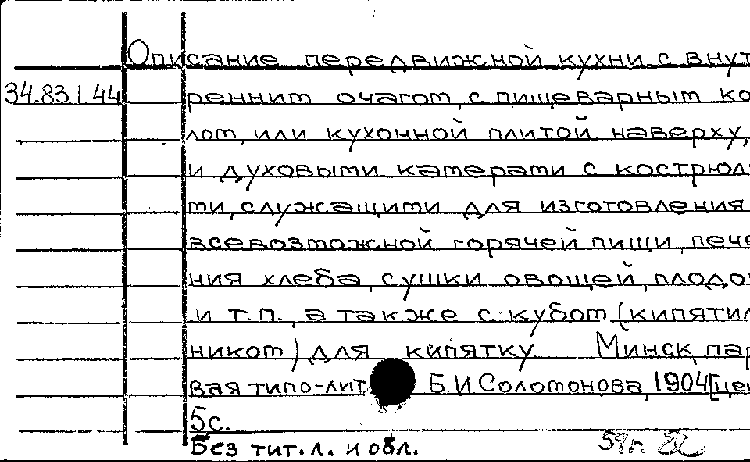 Описание передвижной кухни с внут
34.83.1.44 ренним очагом, с пищеварным ко
лом, или кухонной плитой наверху,
и духовыми камерами с кострюля
ми, служащими для изготовления
всевозможной горячей пищи, пече
ния хлеба, сушки овощей, плодо
и т.п., а также с кубом (кипятил
ником) для кипятку. Минск, пар
вая типо-лит. Б.И. Соломонова, 1904 [цен
5с.
Без тит. л. и обл.